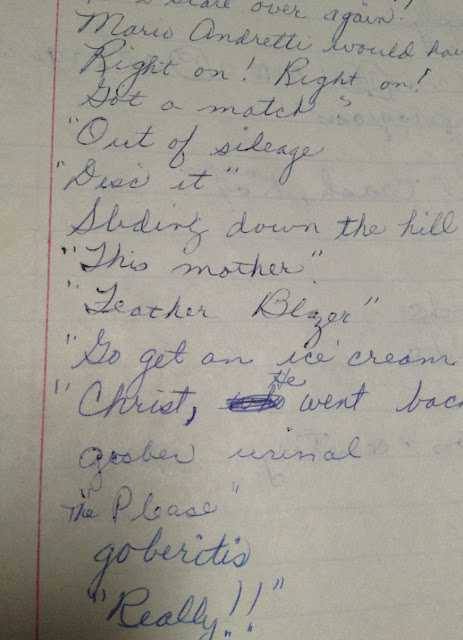 start over again!!
Mario Andretti would hav
Right on! Right on!
Got a match?
"Out of sileage
"Disc it"
Sliding down the hill
"This mother"
"Leather Blazer"
"Go get an ice cream
"Christ, He went back
goober urinal
The "Please"
goberitis
"Really!!"